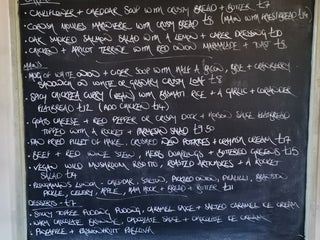 • CAULIFLOWER + CHEDDAR SOUP WITH CRUSTY BREAD + BUTTER £7
MOULES MARINIERE WITH CRUSTY BREAD £8
SMOKED SALMON SALAD WITH A LEMON + CAPER DRESSING £10
• CHICKEN + APRICOT TERRINE WITH RED ONION MARMALADE + TOAST £8
MAINS
OF WHITE ONION + CIDER SOUP WITH HALF A BACON, BRIE + CRANBERRY
SANDWICH ON WHITE OR GRANARY CRUSTY LOAF
• SPICY CHICKPEA CURRY (VEGAN) WITH BASMATI RICE + A GARLIC + CORIANDER
FLATBREAD £12 (ADD CHICKEN £4)
• GOATS CHEESE + RED PEPPER OR CRISPY DUCK + HOISIN
TOPPED WITH A ROCKET + PARMESAN SALAD
• PAN FRIED FILLET OF HAKE, CRUSHED NEW POTATOES + CREAM £17
• BEEF + RED WINE STEW, HERB DUMPLINGS + BUTTERED GREENS £15
• VEGAN WILD MUSHROOM RISOTTO, ROASTED ARTICHOKES + A ROCKET
SALAD
• PLOUGHMANS LUNCH - CHEDDAR, STILTON, PICKLED ONION, PICCALILLI,
PICKLE, CELERY, APPLE, HAM HOCK + BREAD + BUTTER
DESSERTS - £7
• STICKY TOFFEE PUDDING, CARAMEL SAUCE + SALTED CARAMEL ICE CREAM
• WARM CHOCOLATE BROWNIE, CHOCOLATE SAUCE + CHOCOLATE ICE CREAM
• PINEAPPLE + PASSIONFRUIT PAVLOVA